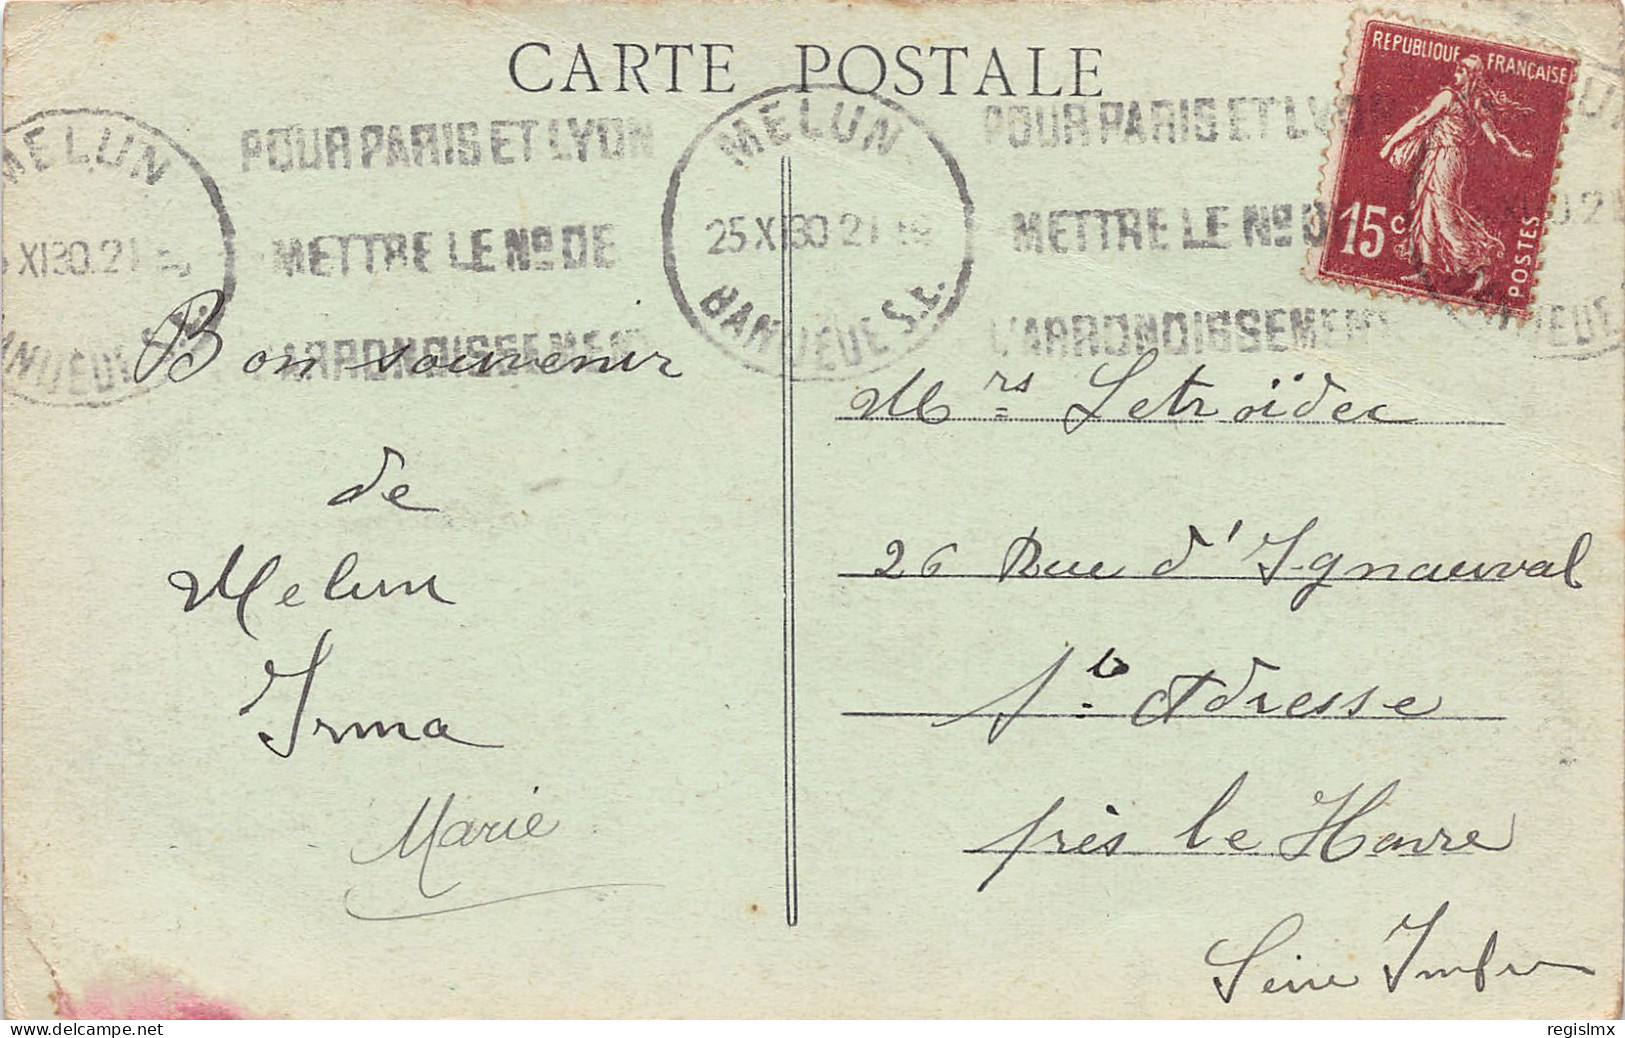 CARTE POSTALE
REPUBLIQUE FRANÇAISE
15c
POSTES
MELUN
XI30.21
BANLIEUE S.E.
POUR PARIS ET LYON
METTRE LE No DE
L'ARRONDISSEMENT
MELUN
25 XI 30.21
BANLIEUE S.E.
POUR PARIS ET LYON
METTRE LE No D
L'ARRONDISSEMENT
Bon souvenir
de
Melun
Irma
Marie
Mrs Letroïdec
26 Rue d'Ignauval
Ste Adresse
près le Havre
Seine Infre
regislmx